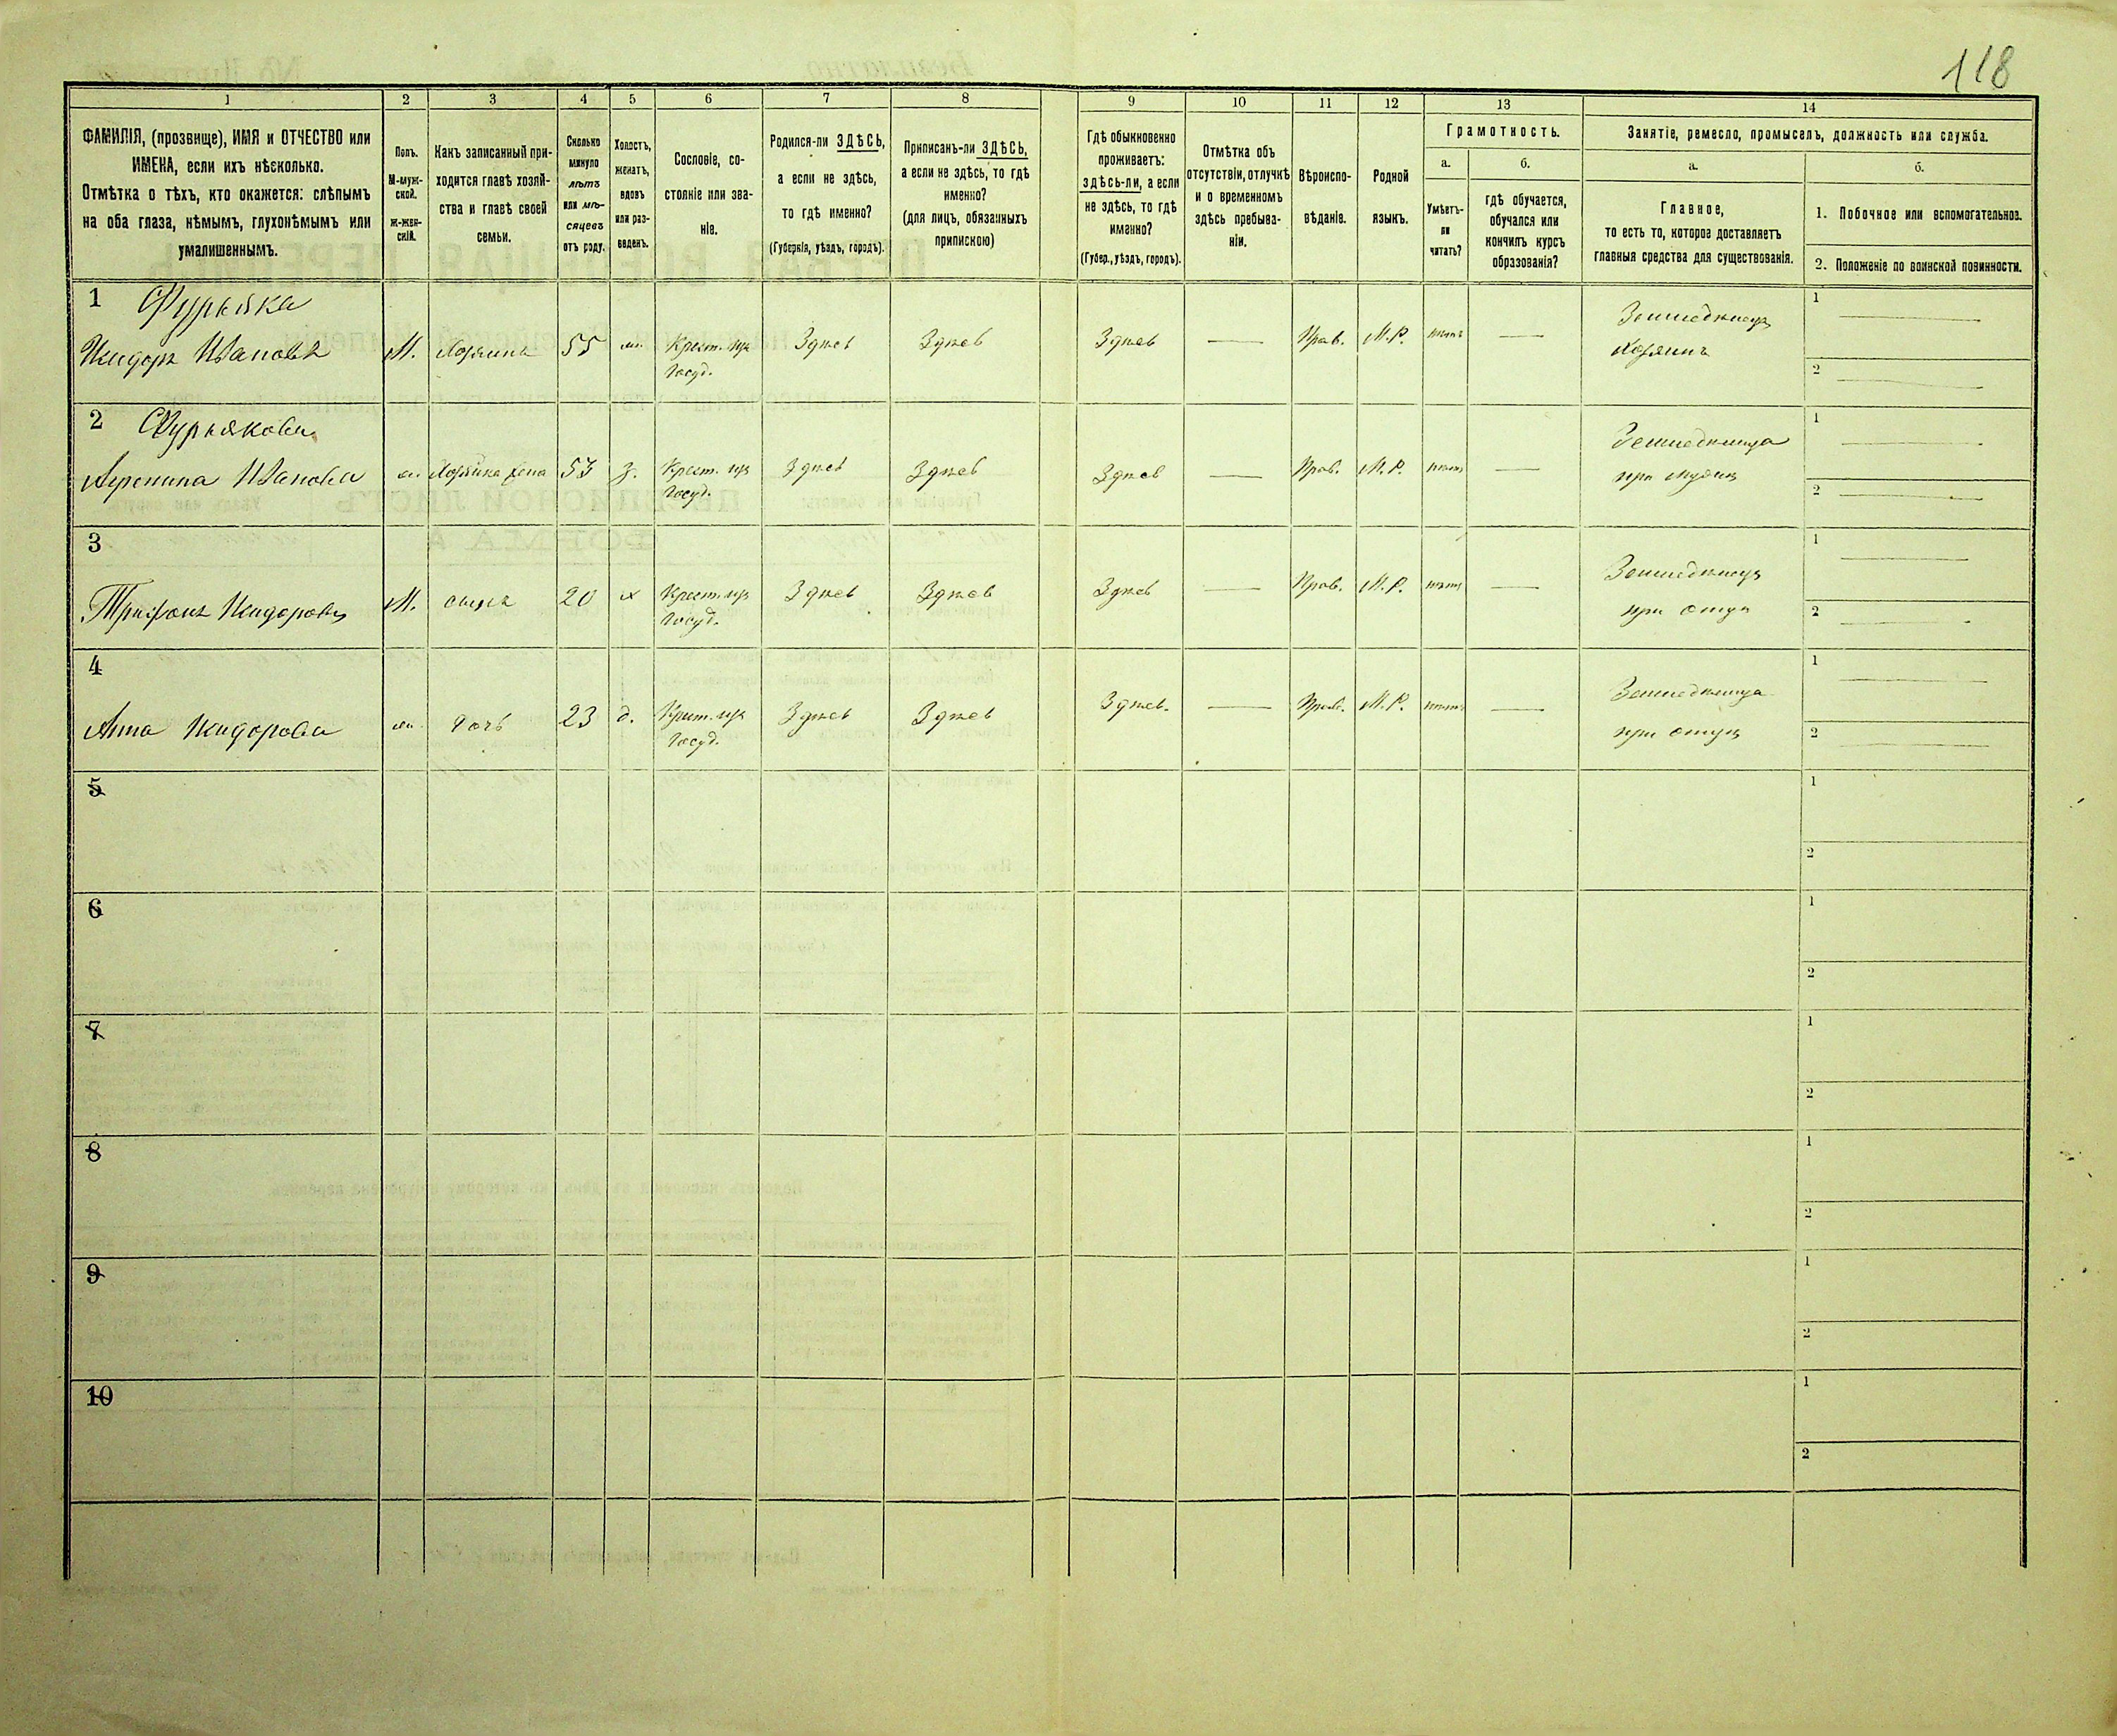 118
1 2 3 4 5 6 7 8 9 10 11 12 13 14
ФАМИЛІЯ, (прозвище), ИМЯ и ОТЧЕСТВО или
ИМЕНА, если ихъ нѣсколько.
Отмѣтка о тѣхъ, кто окажется: слѣпымъ
на оба глаза, нѣмымъ, глухонѣмымъ или
умалишеннымъ.
Полъ.
М-муж-
ской.
Ж-жен-
скій.
Какъ записанный при-
ходится главѣ хозяй-
ства и главѣ своей
семьи.
Сколько
минуло
лѣтъ
или мѣ-
сяцевъ
отъ роду.
Холостъ,
женатъ,
вдовъ
или раз-
веденъ.
Сословіе, со-
стояніе или зва-
ніе.
Родился-ли ЗДѢСЬ,
а если не здѣсь,
то гдѣ именно?
(Губернія, уѣздъ, городъ).
Приписанъ-ли ЗДѢСЬ,
а если не здѣсь, то гдѣ
именно?
(для лицъ, обязанныхъ
припискою)
Гдѣ обыкновенно
проживаетъ:
здѣсь-ли, а если
не здѣсь, то гдѣ
именно?
(Губер., уѣздъ, городъ).
Отмѣтка объ
отсутствіи, отлучкѣ
и о временномъ
здѣсь пребыва-
ніи.
Вѣроиспо-
вѣданіе.
Родной
языкъ.
Грамотность.
а.
Умѣетъ-
ли
читать?
б.
гдѣ обучается,
обучался или
кончилъ курсъ
образованія?
Занятіе, ремесло, промыселъ, должность или служба.
а.
Главное,
то есть то, которое доставляетъ
главныя средства для существованія.
б.
1. Побочное или вспомогательное.
2. Положеніе по воинской повинности.
1 Фурьяка
Исидоръ Ивановъ М. Хозяинъ 55 Крест. из Здесь Здесь Здесь — Прав. М.Р. нѣтъ — Земледелец 1 —
Госуд. Хозяинъ 2 —
2 Фурьякова
Агрепина Иванова Хозяйка жена 53 з. Крест. из Здесь Здесь Здесь — Прав. М.Р. нѣтъ — Земледелица 1 —
Госуд. при мужѣ 2 —
3
Трифонъ Исидоровъ М. сынъ 20 х Крест. из Здесь Здесь Здесь — Прав. М.Р. нѣтъ — Земледелец 1 —
Госуд. при отцѣ 2 —
4
Анна Исидорова дочь 23 д. Крест. из Здесь Здесь Здесь. — Прав. М.Р. нѣтъ — Земледелица 1 —
Госуд. при отцѣ 2 —
5 1
2
6 1
2
7 1
2
8 1
2
9 1
2
10 1
2